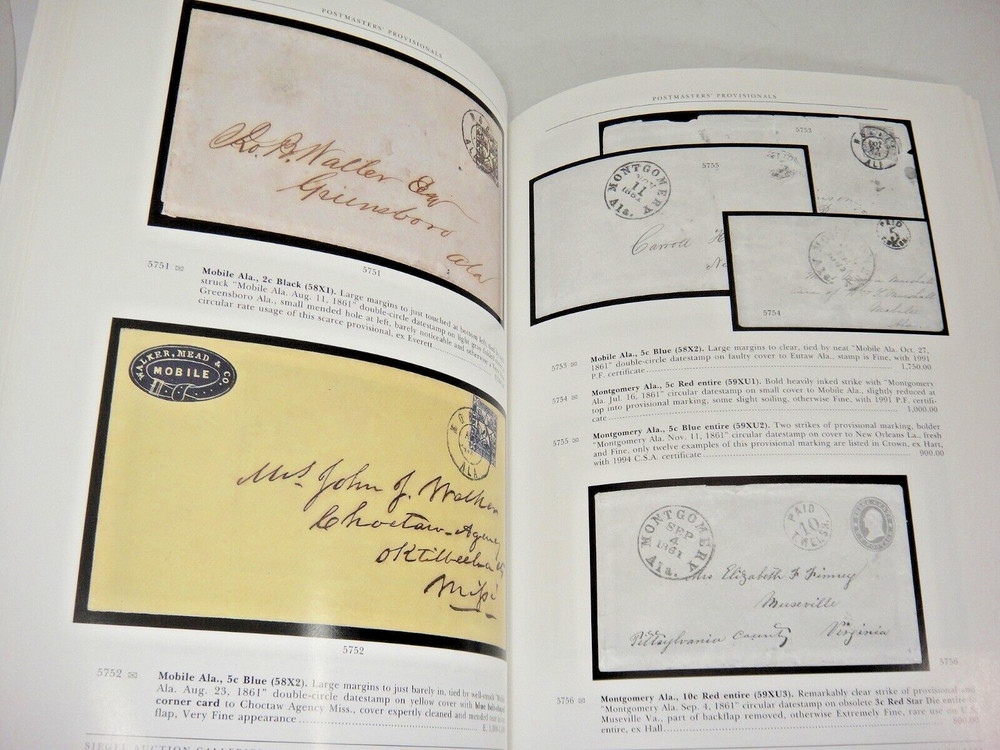 POSTMASTERS' PROVISIONALS
Greensboro
Ala
5751
5751 Mobile Ala., 2c Black (58X1). Large margins to just touched at bottom
struck "Mobile Ala. Aug. 11, 1861" double-circle datestamp on light gray
Greensboro Ala., small mended hole at left, barely noticeable and
circular rate usage of this scarce provisional, ex Everett
WALKER, MEAD & CO.
MOBILE
ALA
Mrs John J. Walker
Choctaw Agency
Oktibbeha
Mipi
5752
5752 Mobile Ala., 5c Blue (58X2). Large margins to just barely in, tied by
Ala. Aug. 23, 1861" double-circle datestamp on yellow cover with blue
corner card to Choctaw Agency Miss., cover expertly cleaned and mended
flap, Very Fine appearance
POSTMASTERS' PROVISIONALS
5753
5755
MONTGOMERY
NOV
11
1861
Ala.
Carroll H
Ne
PAID
5
5754
5753 Mobile Ala., 5c Blue (58X2). Large margins to clear, tied by neat "Mobile Ala. Oct. 27,
1861" double-circle datestamp on faulty cover to Eutaw Ala., stamp is Fine, with 1991
P.F. certificate 1,750.00
5754 Montgomery Ala., 5c Red entire (59XU1). Bold heavily inked strike with "Montgomery
Ala. Jul. 16, 1861" circular datestamp on small cover to Mobile Ala., slightly reduced at
top into provisional marking, some slight soiling, otherwise Fine, with 1991 P.F. certifi-
cate 1,000.00
5755 Montgomery Ala., 5c Blue entire (59XU2). Two strikes of provisional marking, bolder
"Montgomery Ala. Nov. 11, 1861" circular datestamp on cover to New Orleans La., fresh
and Fine, only twelve examples of this provisional marking are listed in Crown, ex Hart,
with 1994 C.S.A. certificate 900.00
MONTGOMERY
SEP
4
1861
Ala.
PAID
10
T.WELSH.
Mrs Elizabeth F Finney
Museville
Pittsylvania County Virginia
5756
5756 Montgomery Ala., 10c Red entire (59XU3). Remarkably clear strike of provisional
"Montgomery Ala. Sep. 4, 1861" circular datestamp on obsolete 3c Red Star Die entire
Museville Va., part of backflap removed, otherwise Extremely Fine, rare use on U.S.
entire, ex Hall
SIEGEL AUCTION GALLERIES